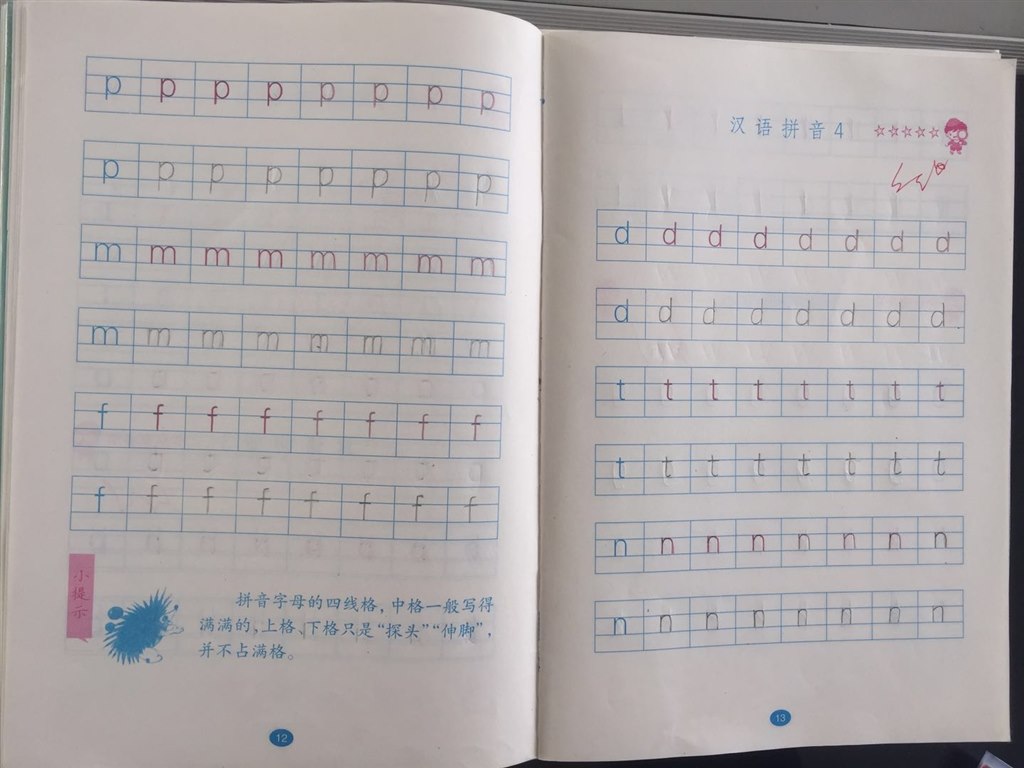 p p p p p p p p
p p p p p p p p
m m m m m m m m
m m m m m m m m
f f f f f f f f
f f f f f f f f
小提示
拼音字母的四线格，中格一般写得
满满的，上格、下格只是“探头”“伸脚”，
并不占满格。
12
汉语拼音4
d d d d d d d d
d d d d d d d d
t t t t t t t t
t t t t t t t t
n n n n n n n n
n n n n n n n n
13